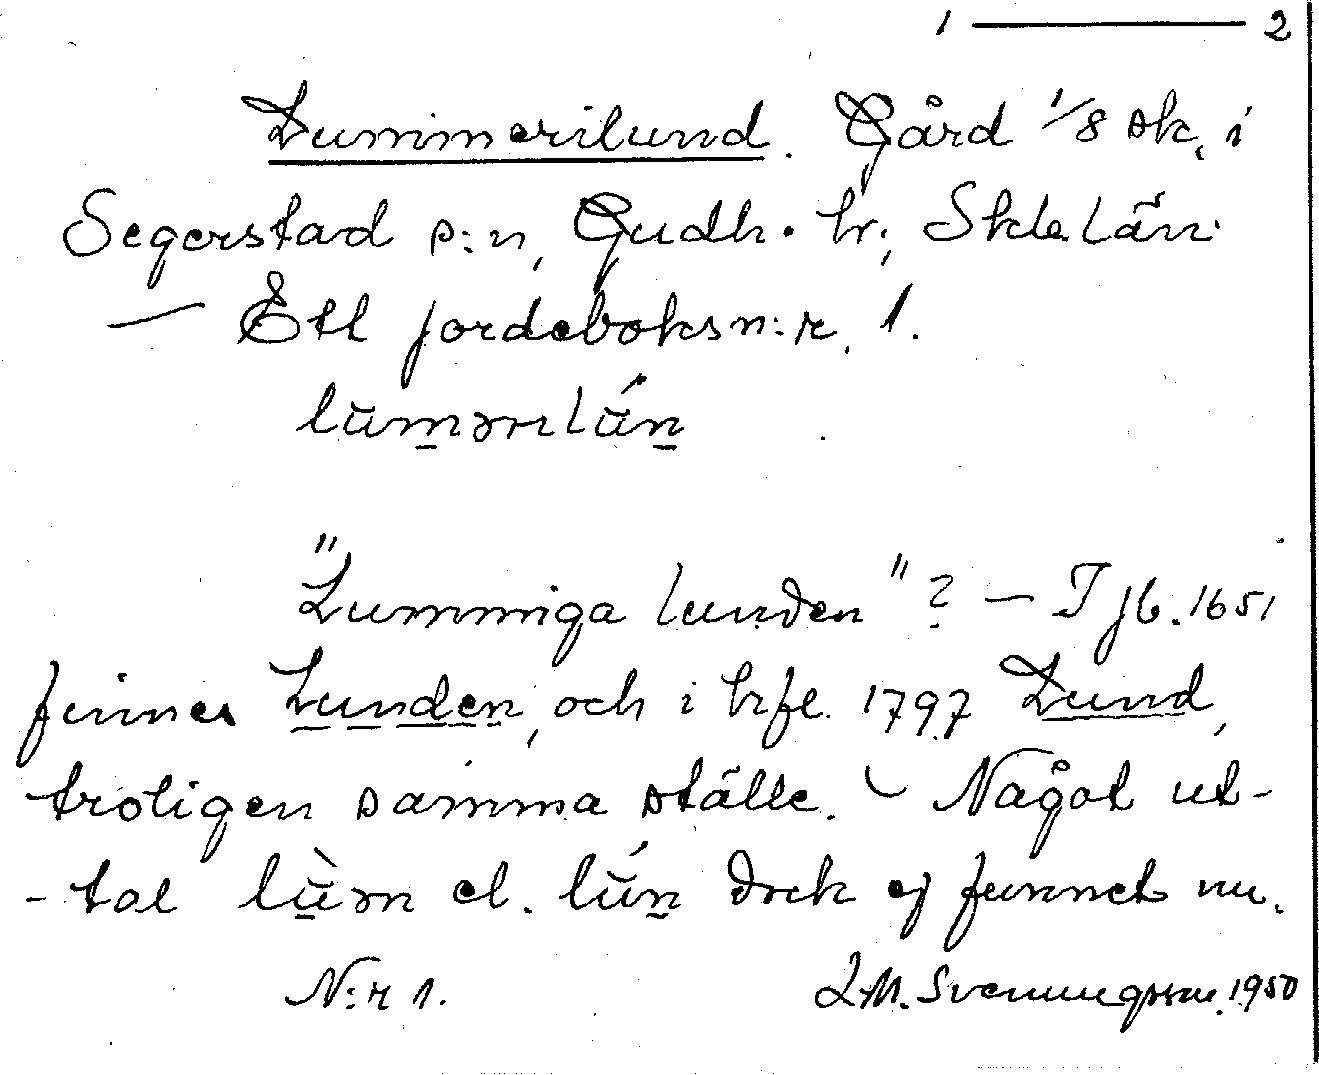 1 — 2
Lummerilund. Gård 1/8 sk, i
Segerstad s:n, Gudh. hr, Skla. län.
— Ett jordeboksn:r, 1.
"Lummiga lunden"? — I jb. 1651
finnes Lunden, och i hfl. 1797 Lund,
troligen samma ställe. — Något ut-
-tal el. dock ej funnet nu.
N:r 1. L.M. Svenungsson. 1950